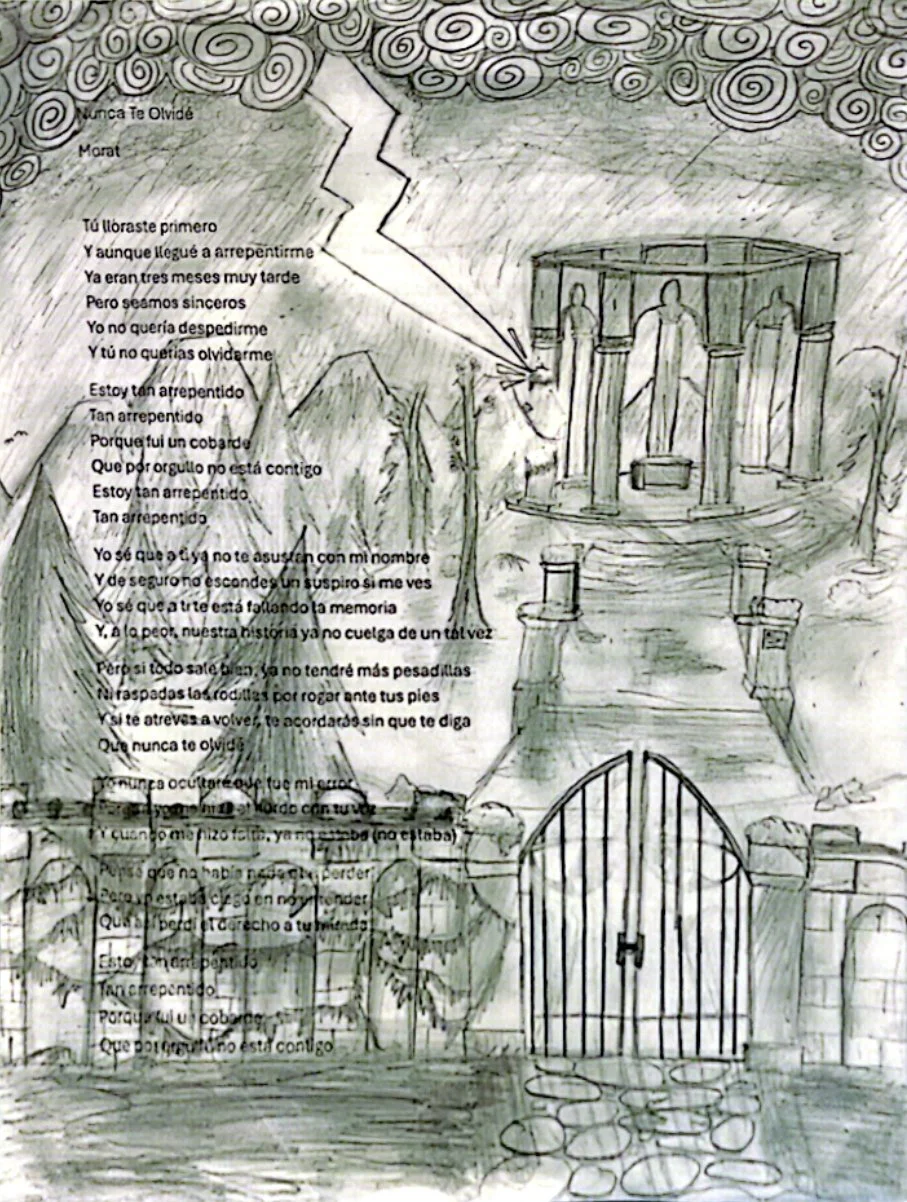 Nunca Te Olvidé
Morat
Tú lloraste primero
Y aunque llegué a arrepentirme
Ya eran tres meses muy tarde
Pero seamos sinceros
Yo no quería despedirme
Y tú no querías olvidarme
Estoy tan arrepentido
Tan arrepentido
Porque fui un cobarde
Que por orgullo no está contigo
Estoy tan arrepentido
Tan arrepentido
Yo sé que a ti ya no te asustan con mi nombre
Y de seguro no escondes un suspiro si me ves
Yo sé que a ti te está fallando la memoria
Y, a lo peor, nuestra historia ya no cuelga de un tal vez
Pero si todo sale bien, ya no tendré más pesadillas
Ni raspadas las rodillas por rogar ante tus pies
Y si te atreves a volver, te acordarás sin que te diga
Que nunca te olvidé
Yo nunca ocultaré que fue mi error
yo me hice el sordo con tu voz
Y cuando me hizo falta, ya no estaba (no estaba)
Pensé que no había nada que perder
Pero yo estaba ciego en no entender
Que así perdí el derecho a tu mirada
Estoy tan arrepentido
Tan arrepentido
Porque fui un cobarde
Que por orgullo no está contigo